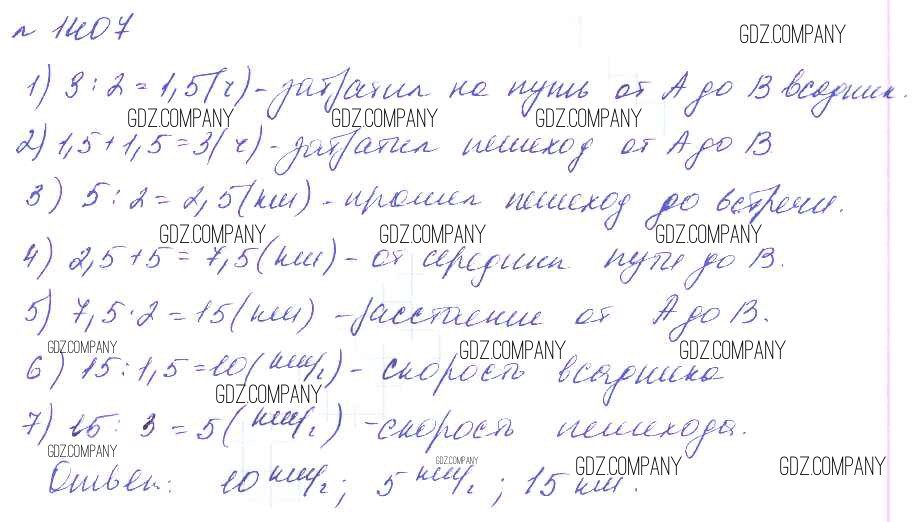 № 1407
GDZ.COMPANY
1) 3 : 2 = 1,5(ч) - затратил на путь от А до В всадник.
GDZ.COMPANY GDZ.COMPANY GDZ.COMPANY
2) 1,5 + 1,5 = 3(ч) - затратил пешеход от А до В
3) 5 : 2 = 2,5(км) - прошел пешеход до встречи.
GDZ.COMPANY GDZ.COMPANY GDZ.COMPANY
4) 2,5 + 5 = 7,5(км) - от середины пути до В.
5) 7,5 · 2 = 15(км) - расстояние от А до В.
GDZ.COMPANY GDZ.COMPANY GDZ.COMPANY
6) 15 : 1,5 = 10(км/ч) - скорость всадника
GDZ.COMPANY
7) 15 : 3 = 5(км/ч) - скорость пешехода.
GDZ.COMPANY GDZ.COMPANY GDZ.COMPANY GDZ.COMPANY
Ответ: 10 км/ч; 5 км/ч; 15 км.